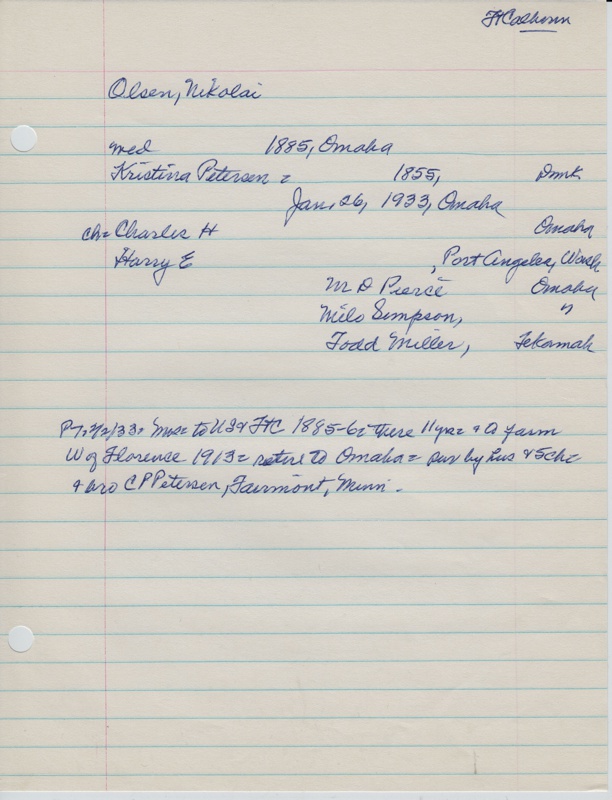 Ft Calhoun
Olsen, Nikolai
med 1885, Omaha
Kristina Petersen = 1855, Dmk
Jan, 26, 1933, Omaha
ch= Charles H Omaha
Harry E , Port Angeles, Wash
M D Pierce Omaha
Milo Simpson, "
Todd Miller, Tekamah
P T= 2/2/33= Mrs= to US & FtC 1885-6= there 11 yrs= & to farm
W of Florence 1913= retire to Omaha= sur by hus & 5 ch=
& bro C P Petersen, Fairmont, Minn.